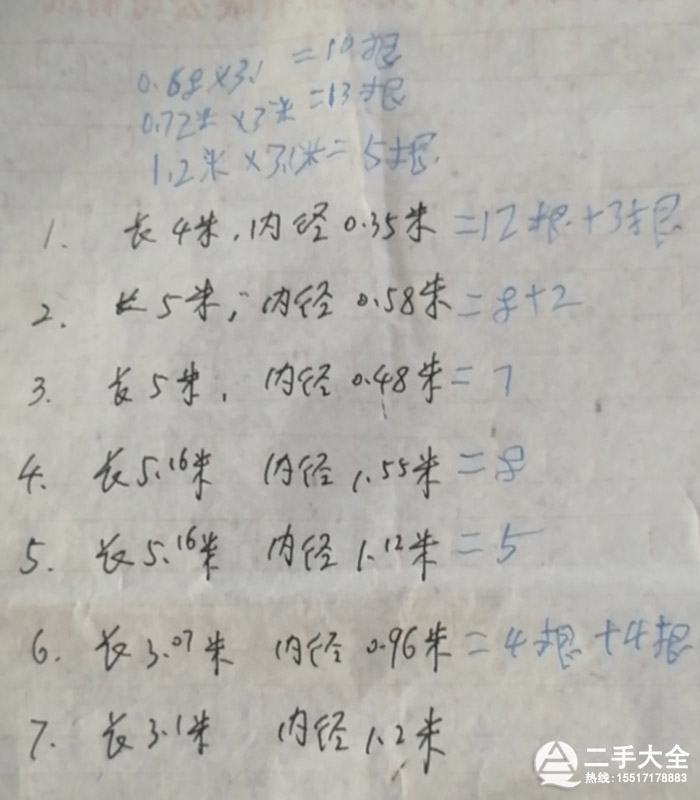 0.68×3.1 =10根
0.72米×3米=13根
1.2米×3.1米=5根.
1. 长4米,内径0.35米=12根+3根
2. 长5米,内径0.58米=8+2
3. 长5米, 内径0.48米=7
4. 长5.16米 内径1.55米=8
5. 长5.16米 内径1.12米=5
6. 长3.07米 内径0.96米=4根+4根
7. 长3.1米 内径1.2米
二手大全
热线:15517178883